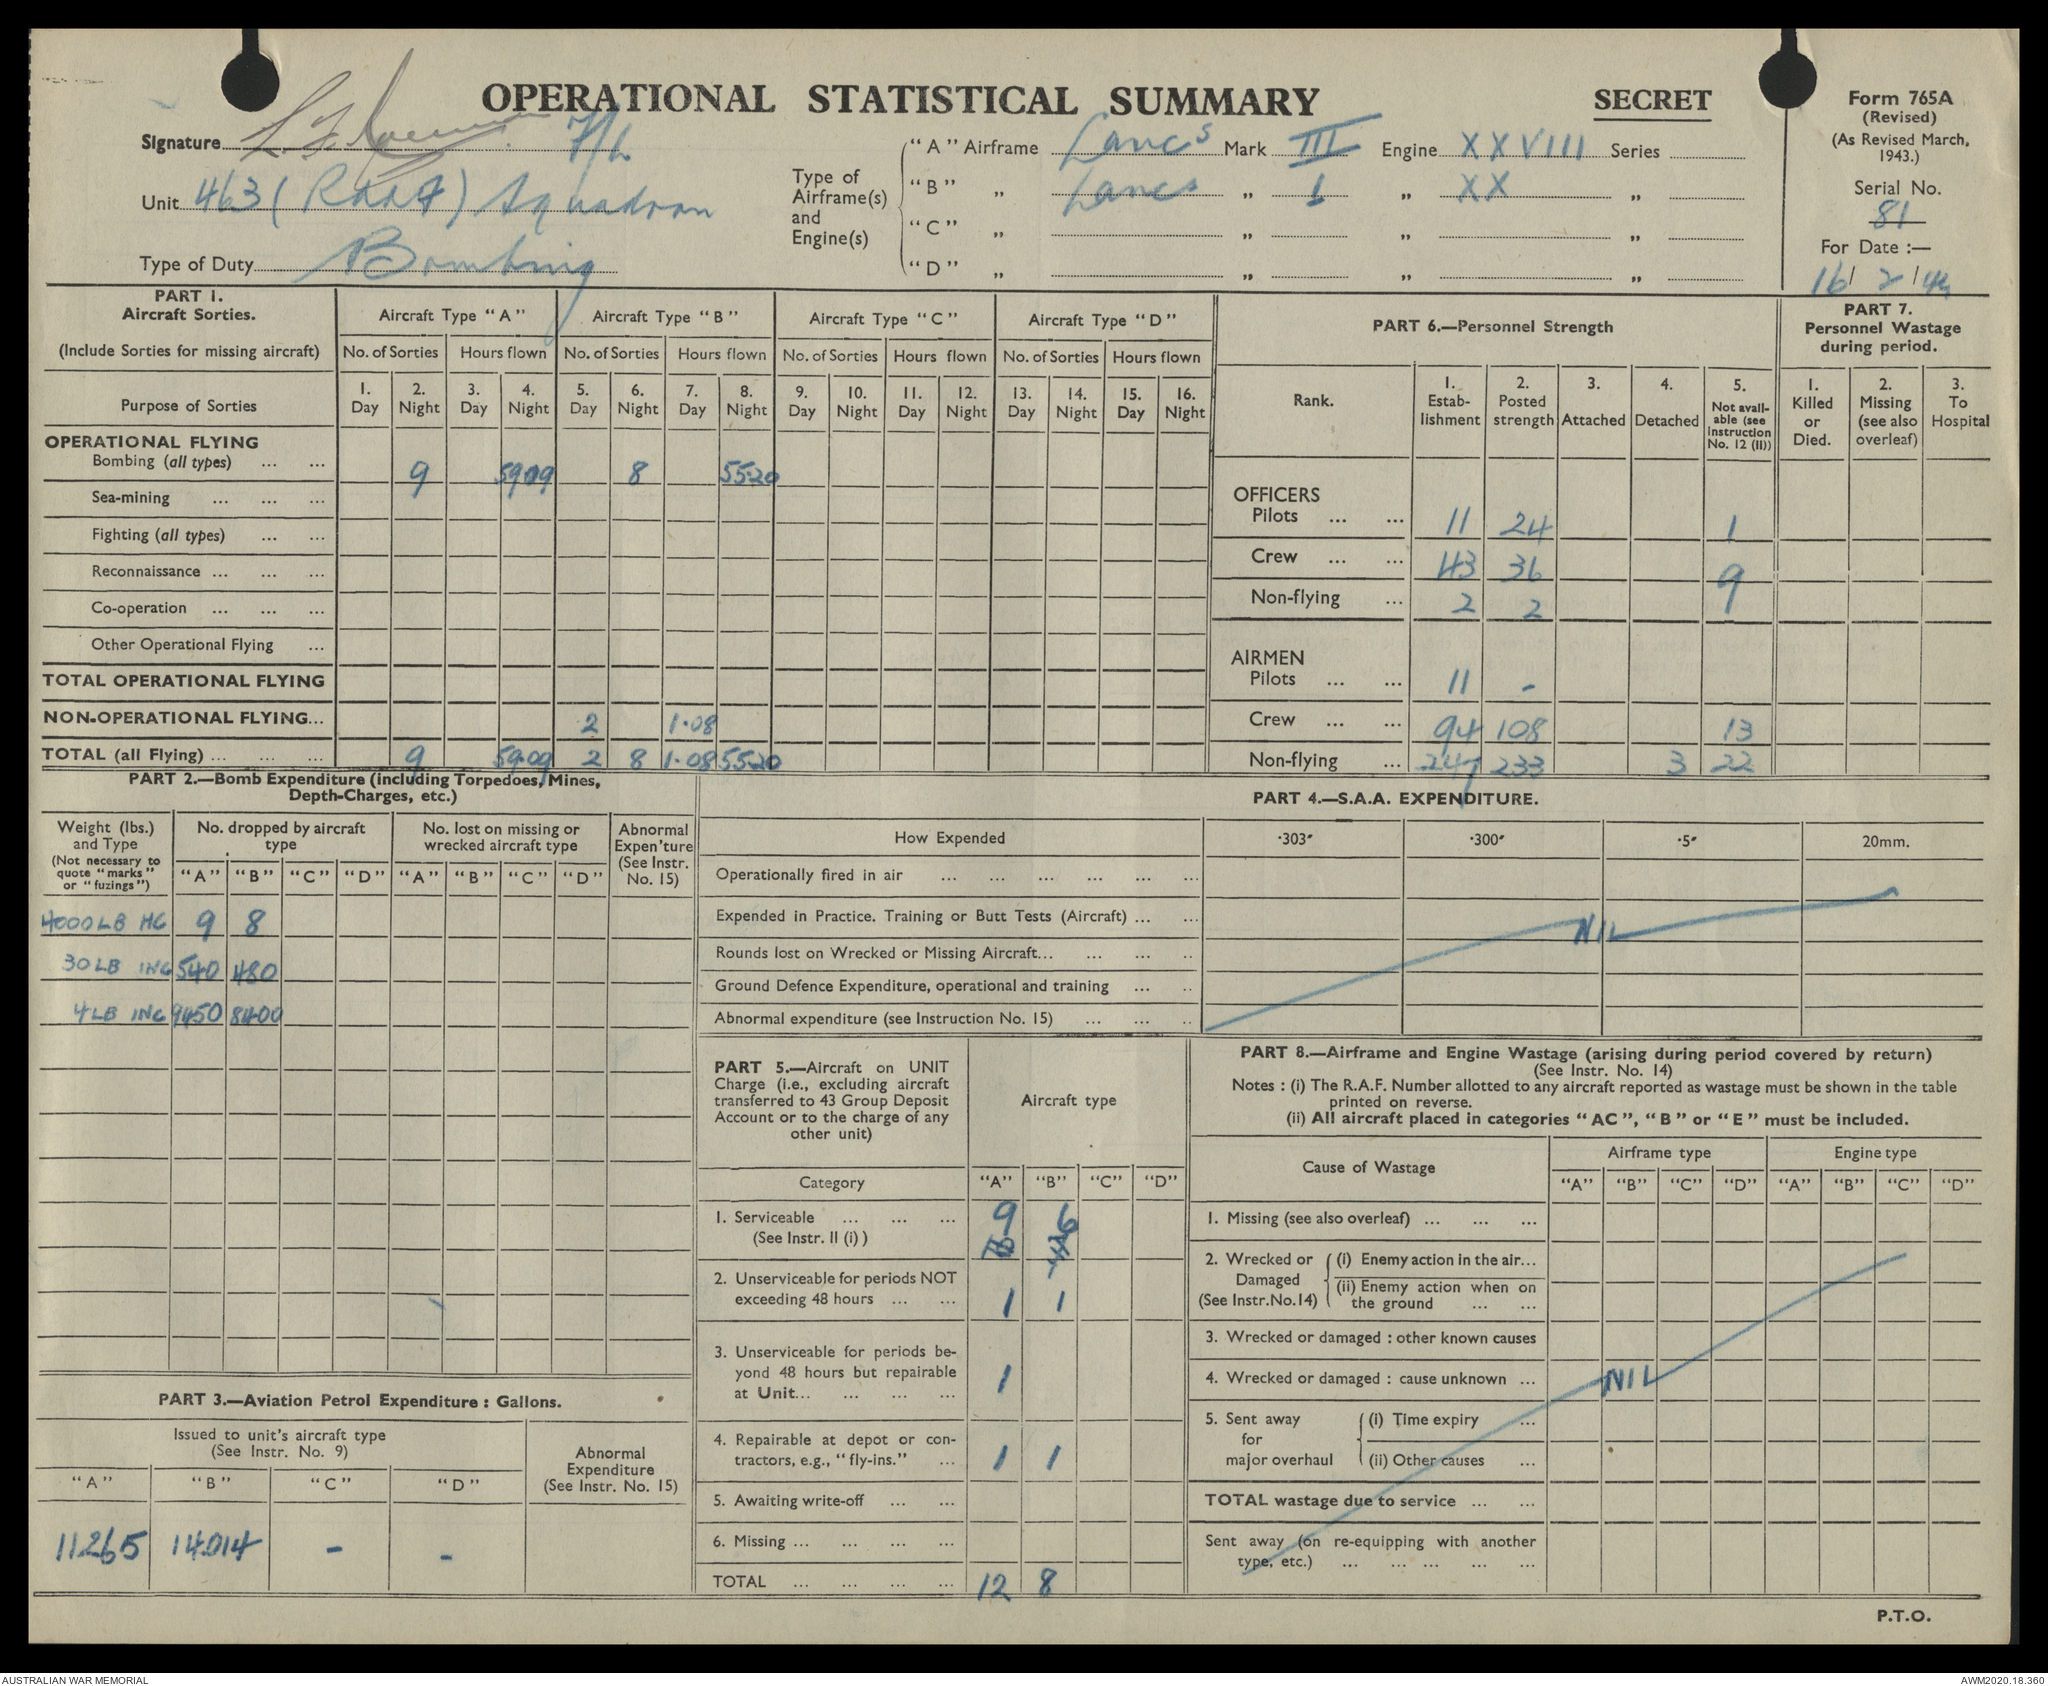 OPERATIONAL STATISTICAL SUMMARY
SECRET
Form 765A
(Revised)
(As Revised March,
1943.)
Serial No.
81
For Date :—
16/ 2 /44
Signature F/L
Unit 463 (RAAF) Squadron
Type of Duty Bombing
Type of
Airframe(s)
and
Engine(s)
"A" Airframe Lancs Mark III Engine XXVIII Series
"B" „ Lancs „ 1 „ XX „
"C" „ „ „ „
"D" „ „ „ „
PART 1.
Aircraft Sorties.
(Include Sorties for missing aircraft)
Aircraft Type "A" Aircraft Type "B" Aircraft Type "C" Aircraft Type "D"
No. of Sorties Hours flown No. of Sorties Hours flown No. of Sorties Hours flown No. of Sorties Hours flown
Purpose of Sorties
1. 2. 3. 4. 5. 6. 7. 8. 9. 10. 11. 12. 13. 14. 15. 16.
Day Night Day Night Day Night Day Night Day Night Day Night Day Night Day Night
OPERATIONAL FLYING
Bombing (all types) ... ... 9 59.09 8 55.20
Sea-mining ... ... ...
Fighting (all types) ... ...
Reconnaissance ... ... ...
Co-operation ... ... ...
Other Operational Flying ...
TOTAL OPERATIONAL FLYING
NON-OPERATIONAL FLYING... 2 1.08
TOTAL (all Flying) ... ... ... 9 59.09 2 8 1.08 55.20
PART 6.—Personnel Strength
Rank.
1. Estab-lishment
2. Posted strength
3. Attached
4. Detached
5. Not avail-able (see Instruction No. 12 (II))
OFFICERS
Pilots ... ... 11 24 1
Crew ... ... 43 36 9
Non-flying ... 2 2
AIRMEN
Pilots ... ... 11 -
Crew ... ... 94 108 13
Non-flying ... 247 233 3 22
PART 7.
Personnel Wastage
during period.
1. Killed or Died.
2. Missing (see also overleaf)
3. To Hospital
PART 2.—Bomb Expenditure (including Torpedoes, Mines,
Depth-Charges, etc.)
Weight (lbs.)
and Type
(Not necessary to
quote "marks"
or "fuzings")
No. dropped by aircraft
type
No. lost on missing or
wrecked aircraft type
Abnormal
Expen'ture
(See Instr.
No. 15)
"A" "B" "C" "D" "A" "B" "C" "D"
4000LB HC 9 8
30LB INC 540 480
4LB INC 9450 8400
PART 4.—S.A.A. EXPENDITURE.
How Expended ·303" ·300" ·5" 20mm.
Operationally fired in air ... ... ... ... ... ...
Expended in Practice. Training or Butt Tests (Aircraft) ... ...
NIL
Rounds lost on Wrecked or Missing Aircraft... ... ... ..
Ground Defence Expenditure, operational and training ... ..
Abnormal expenditure (see Instruction No. 15) ... ... ..
PART 3.—Aviation Petrol Expenditure : Gallons.
Issued to unit's aircraft type
(See Instr. No. 9)
Abnormal
Expenditure
(See Instr. No. 15)
"A" "B" "C" "D"
11265 14014 - -
PART 5.—Aircraft on UNIT
Charge (i.e., excluding aircraft
transferred to 43 Group Deposit
Account or to the charge of any
other unit)
Aircraft type
Category "A" "B" "C" "D"
1. Serviceable ... ... ... 9 6
(See Instr. II (i) )
2. Unserviceable for periods NOT
exceeding 48 hours ... ... 1 1
3. Unserviceable for periods be-
yond 48 hours but repairable
at Unit... ... ... ... 1
4. Repairable at depot or con-
tractors, e.g., "fly-ins." ... 1 1
5. Awaiting write-off ... ...
6. Missing ... ... ... ...
TOTAL ... ... ... ... 12 8
PART 8.—Airframe and Engine Wastage (arising during period covered by return)
(See Instr. No. 14)
Notes : (i) The R.A.F. Number allotted to any aircraft reported as wastage must be shown in the table
printed on reverse.
(ii) All aircraft placed in categories "AC", "B" or "E" must be included.
Cause of Wastage
Airframe type Engine type
"A" "B" "C" "D" "A" "B" "C" "D"
1. Missing (see also overleaf) ... ... ...
2. Wrecked or
Damaged
(See Instr.No.14)
(i) Enemy action in the air...
(ii) Enemy action when on
the ground ... ...
3. Wrecked or damaged : other known causes
4. Wrecked or damaged : cause unknown ...
NIL
5. Sent away
for
major overhaul
(i) Time expiry ...
(ii) Other causes ...
TOTAL wastage due to service ... ...
Sent away (on re-equipping with another
type, etc.) ... ... ... ... ...
P.T.O.
AUSTRALIAN WAR MEMORIAL
AWM2020.18.360